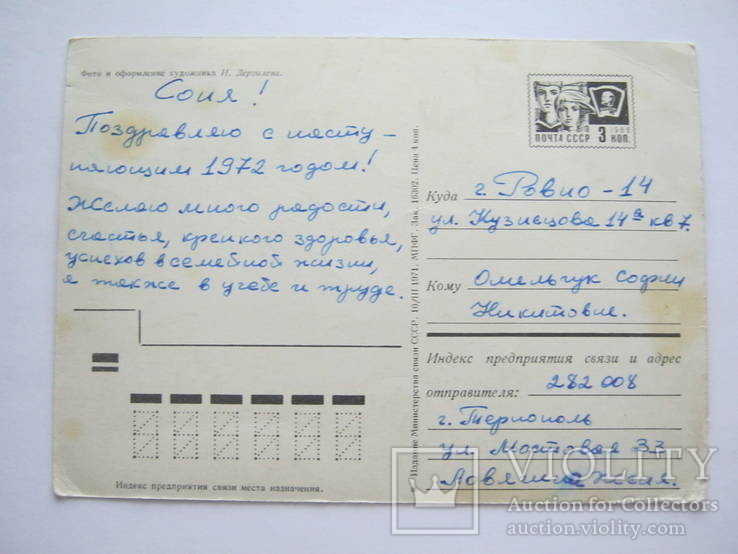 Фото и оформление художника И. Дергилева.
Соня!
Поздравляю с насту-
пающим 1972 годом!
Желаю много радости,
счастья, крепкого здоровья,
успехов в семейной жизни,
а также в учебе и труде.
Индекс предприятия связи места назначения.
Издание Министерства связи СССР. 10/III 1971. МПФГ. Зак. 16302. Цена 4 коп.
ПОЧТА СССР 3 КОП.
1966
Куда г. Ровно - 14
ул. Кузнецова 14а кв 7.
Кому Омельчук Софии
Никитовне.
Индекс предприятия связи и адрес
отправителя: 282 008
г. Тернополь
ул. Мостовая 33
VIOLITY
Auction for Collectors
auction.violity.com